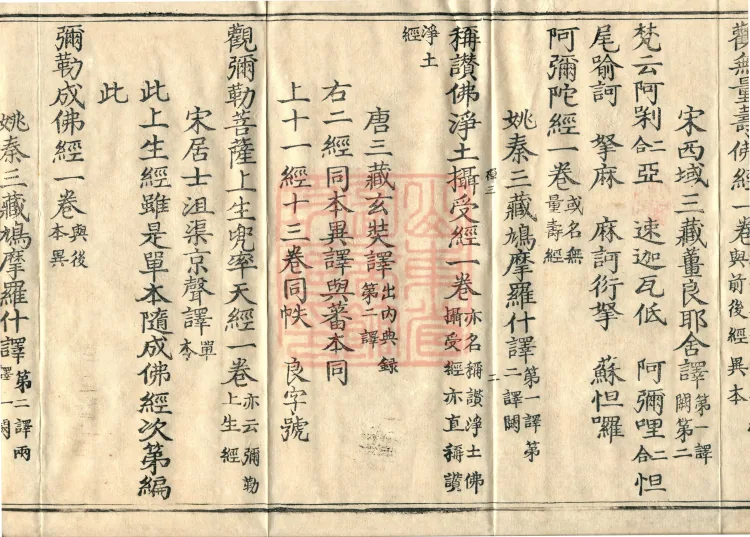 觀無量壽佛經一卷與前後經異本
宋西域三藏畺良耶舍譯第一譯闕第二
梵云阿剎二合亞 速迦瓦低 阿彌哩二合怛
尾喻訶 拏麻 麻訶衍拏 蘇怛囉
阿彌陀經一卷或名無量壽經
姚秦三藏鳩摩羅什譯第一譯第二譯闕
稱讚佛淨土攝受經一卷亦名稱讚淨土佛攝受經亦直稱讚
淨土經
唐三藏玄奘譯出內典錄第二譯
右二經同本異譯與蕃本同
上十一經十三卷同帙 良字號
觀彌勒菩薩上生兜率天經一卷亦云彌勒上生經
宋居士沮渠京聲譯單本
此上生經雖是單本隨成佛經次第編
此
彌勒成佛經一卷與後本異
姚秦三藏鳩摩羅什譯第二譯兩譯一闕